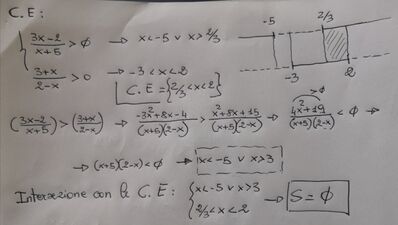 C.E:
3x-2/x+5 > ∅ → x<-5 ∨ x>2/3
-5 2/3
3+x/2-x > 0 → -3<x<2
-3 2
C.E={2/3<x<2}
(3x-2/x+5) > (3+x/2-x) → -3x²+8x-4/(x+5)(2-x) > x²+8x+15/(x+5)(2-x) → 4x²+19/(x+5)(2-x) < ∅ →
>∅
→ (x+5)(2-x)<∅ → x<-5 ∨ x>3
Intersezione con la C.E: {x<-5 ∨ x>3 → S=∅
2/3<x<2